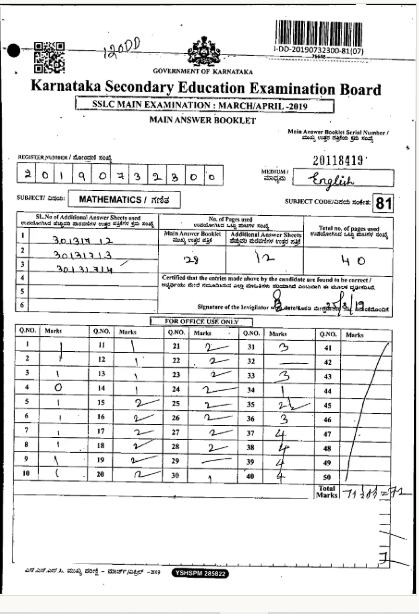 120DD
I-DD-20190732300-81(07)
GOVERNMENT OF KARNATAKA
Karnataka Secondary Education Examination Board
SSLC MAIN EXAMINATION : MARCH/APRIL -2019
MAIN ANSWER BOOKLET
Main Answer Booklet Serial Number /
ಮುಖ್ಯ ಉತ್ತರ ಪತ್ರಿಕೆಯ ಕ್ರಮ ಸಂಖ್ಯೆ
REGISTER NUMBER / ನೋಂದಣಿ ಸಂಖ್ಯೆ
20118419
2 0 1 9 0 7 3 2 3 0 0
MEDIUM / ಮಾಧ್ಯಮ English
SUBJECT/ ವಿಷಯ: MATHEMATICS / ಗಣಿತ SUBJECT CODE/ವಿಷಯ ಸಂಕೇತ: 81
Sl.No of Additional Answer Sheets used No. of Pages used Total no. of pages used
Main Answer Booklet Additional Answer Sheets
ಮುಖ್ಯ ಉತ್ತರ ಪತ್ರಿಕೆ
1 30131712
2 30131713 28 12 40
3 30131714
4 Certified that the entries made above by the candidate are found to be correct /
5
6 Signature of the Invigilator
FOR OFFICE USE ONLY
Q.NO. Marks Q.NO. Marks Q.NO. Marks Q.NO. Marks Q.NO. Marks
1 1 11 1 21 2 31 3 41
2 1 12 1 22 2 32 — 42
3 1 13 1 23 2 33 3 43
4 0 14 1 24 2 34 1 44
5 1 15 2 25 2 35 45
6 1 16 2 26 2 36 3 46
7 1 17 2 27 2 37 4 47
8 1 18 2 28 2 38 4 48
9 1 19 2 29 — 39 4 49
10 1 20 2 30 1 40 4 50
Total Marks
ಎಸ್.ಎಸ್.ಎಲ್.ಸಿ. ಮುಖ್ಯ ಪರೀಕ್ಷೆ - ಮಾರ್ಚ್/ಏಪ್ರಿಲ್ -2019 YSHSPM 285822